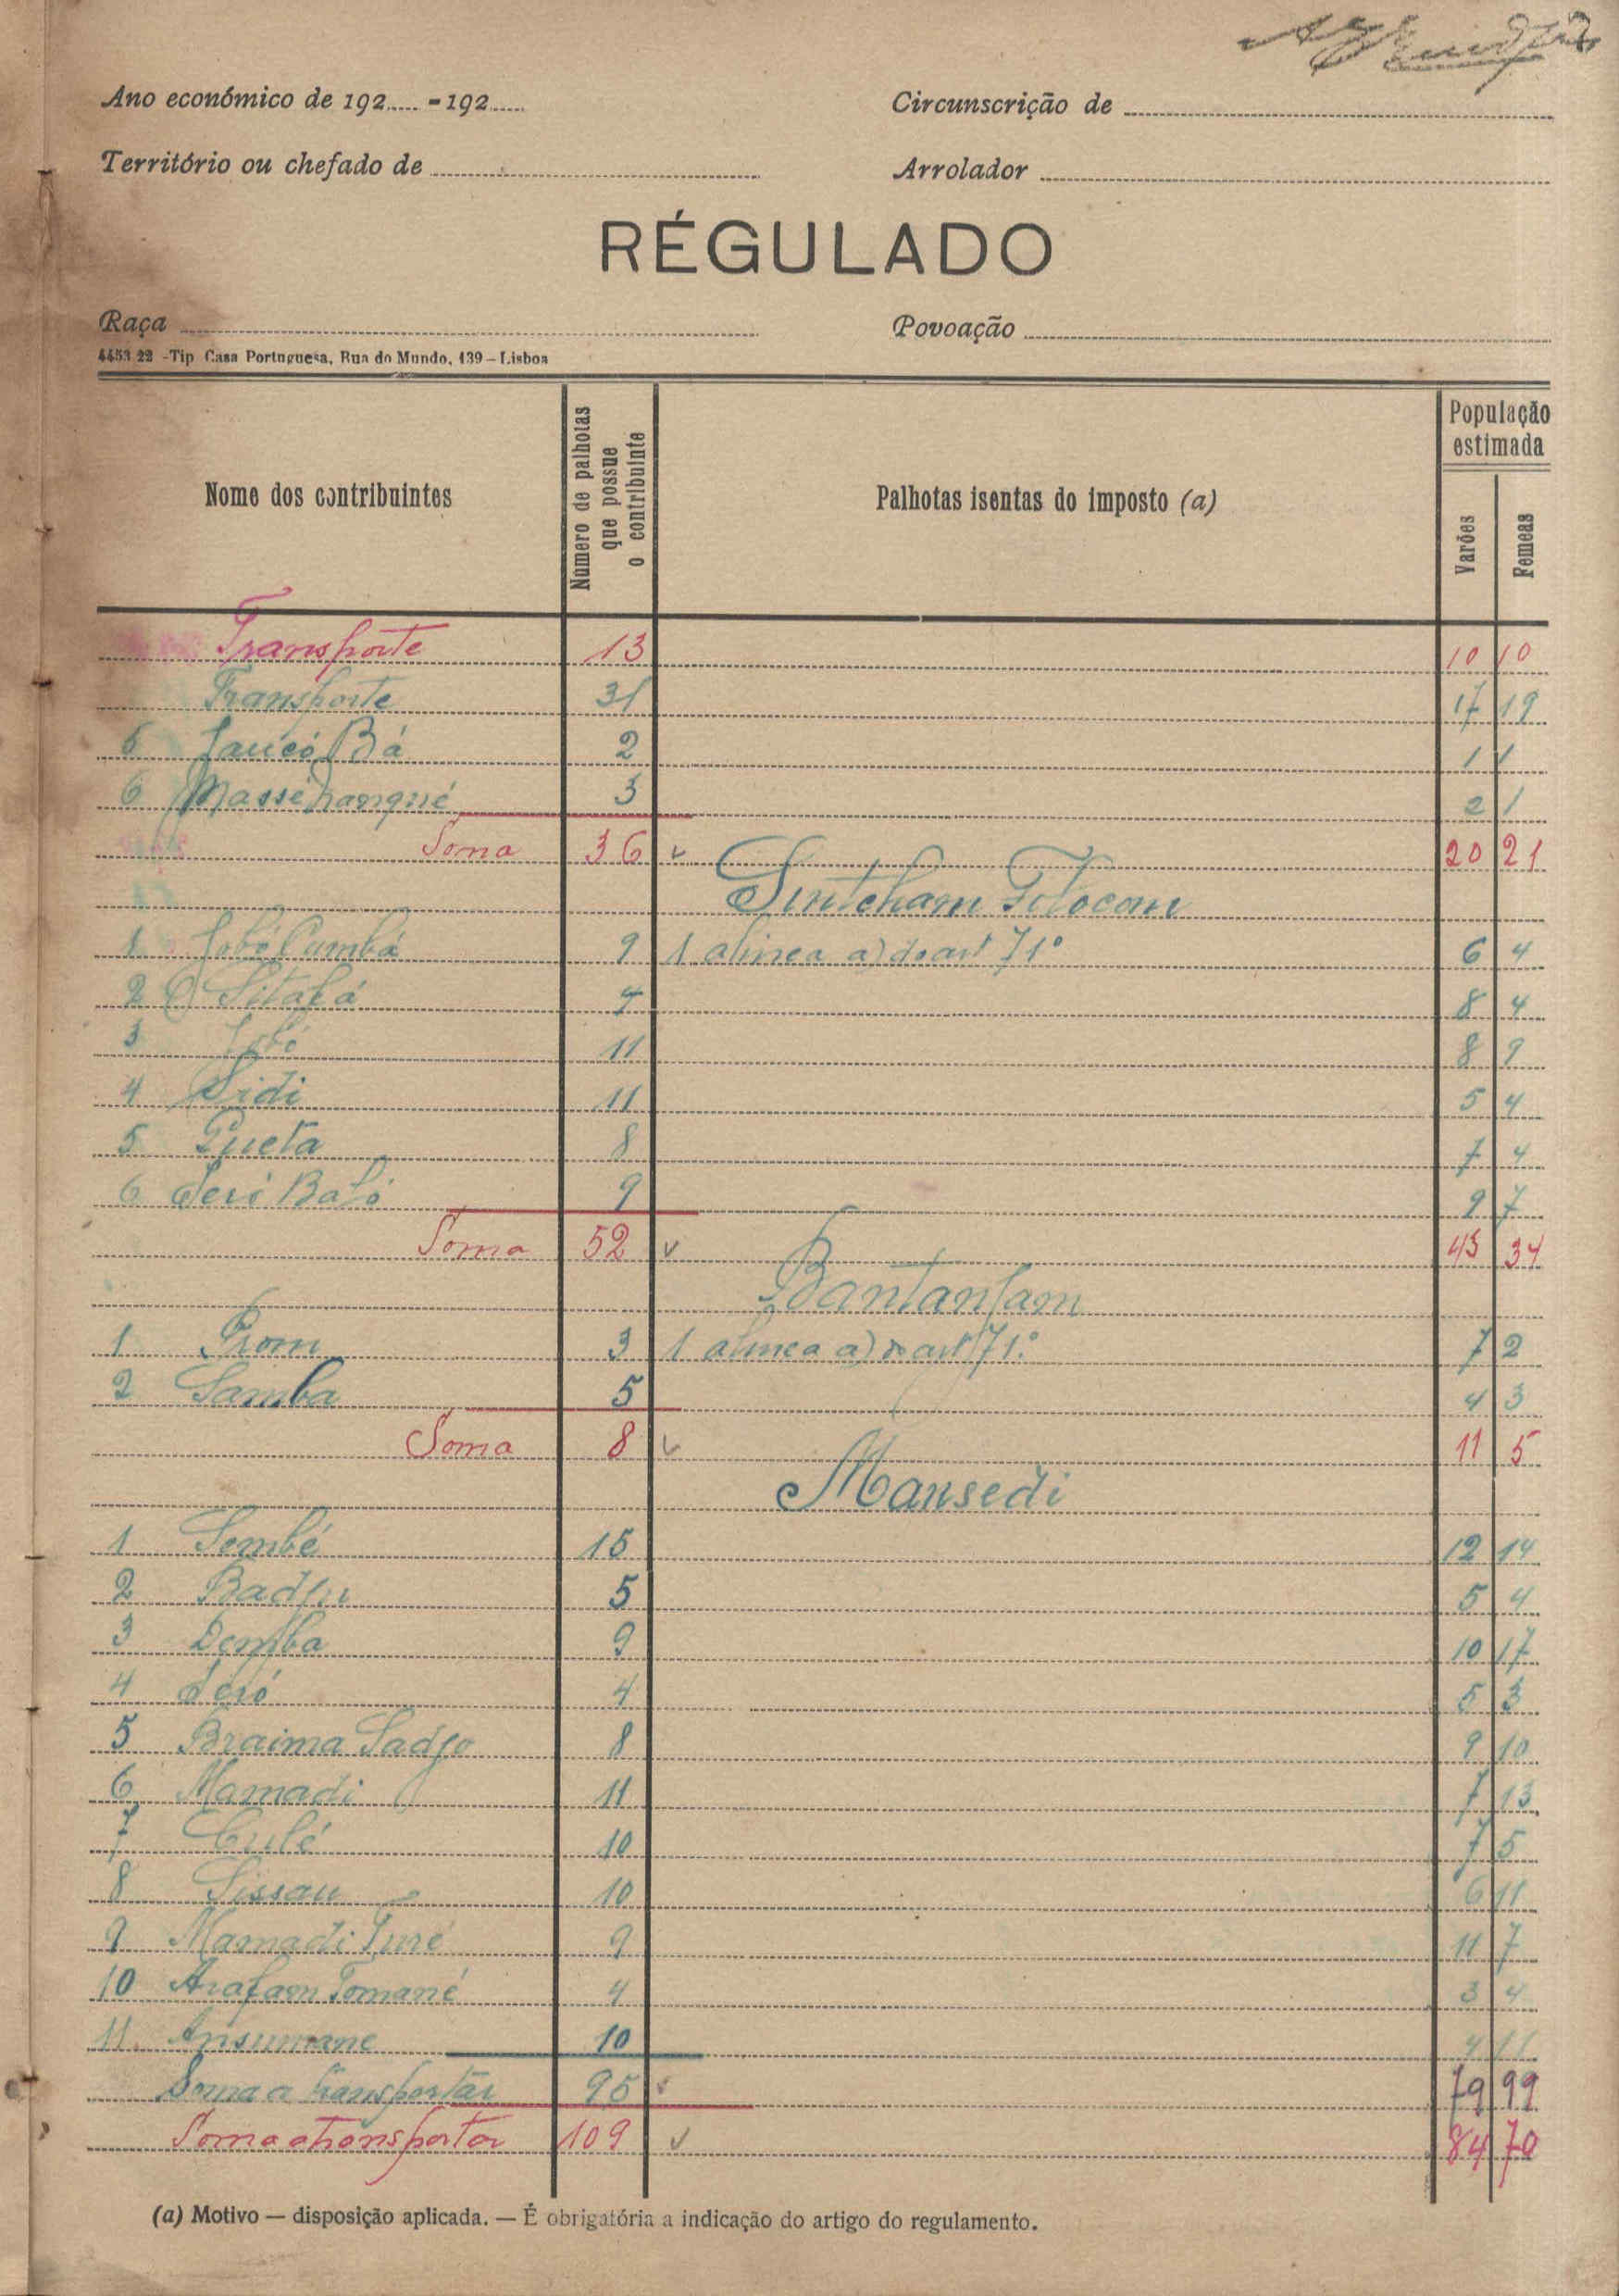 Ano económico de 192..... -192.....
Circunscrição de
Território ou chefado de
Arrolador
RÉGULADO
Raça
Povoação
4453 22 -Tip Casa Portuguesa, Rua do Mundo, 139 – Lisboa
Nome dos contribuintes
Número de palhotas que possue o contribuinte
Palhotas isentas do imposto (a)
População estimada
Varões
Femeas
Transporte 13 10 10
Transporte 31 17 19
5 Bá 2 1 1
6 3 2 1
Soma 36 20 21
Sintcham
1 9 1 alinea a) do art 71º 6 4
2 7 8 4
3 11 8 9
4 Sidi 11 5 4
5 Queta 8 7 4
6 9 9 7
Soma 52 43 34
Bantanjam
1 3 1 alinea a) do art 71.º 7 2
2 Samba 5 4 3
Soma 8 11 5
Mansedi
1 15 12 14
2 5 5 4
3 Demba 9 10 17
4 4 5 3
5 Braima Sadjo 8 9 10
6 Mamadi 11 7 13
7 10 7 5
8 10 6 11
9 Mamadi Turé 9 11 7
10 4 3 4
11 Ansumane 10 4 11
Soma a transportar 95 79 99
Soma a transportar 109 84 70
(a) Motivo — disposição aplicada. — É obrigatória a indicação do artigo do regulamento.